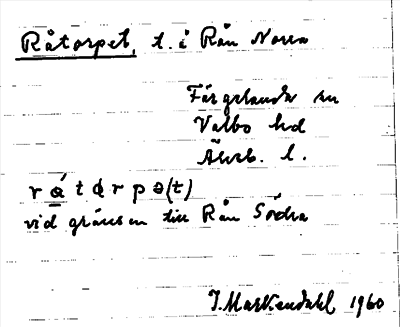 Råtorpet, t. i Rån Norra
Färgelanda sn
Valbo hd
Älvsb. l.
vid gränsen till Rån Södra
1960